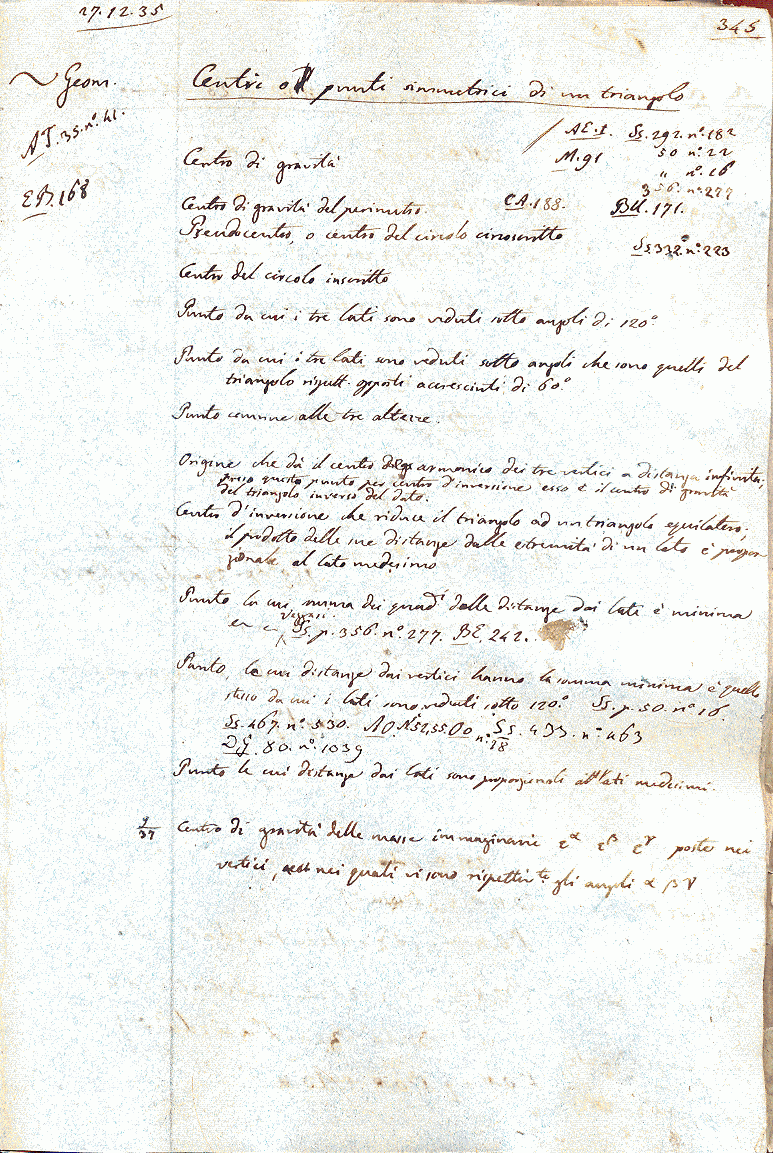 27.12.35
345
Geom.
AT.35.nº.41.
EB.168
Centri o punti simmetrici di un triangolo
AE.I. Ss.292.nº.182
Centro di gravità M.91 50 nº.22
" nº.16
356.nº.277
Centro di gravità del perimetro. CA.188. BU.171.
Pseudocentro, o centro del circolo circoscritto
Ss.332.nº.223
Centro del circolo inscritto
Punto da cui i tre lati sono veduti sotto angoli di 120.º
Punto da cui i tre lati sono veduti sotto angoli che sono quelli del
triangolo rispett. opposti accresciuti di 60.º
Punto comune alle tre altezze.
Origine che dà il centro armonico dei tre vertici a distanza infinita;
preso questo punto per centro d'inversione esso è il centro di gravità
del triangolo inverso del dato.
Centro d'inversione che riduce il triangolo ad un triangolo equilatero;
il prodotto delle sue distanze dalle estremità di un lato è propor
zionale al lato medesimo
Punto la cui somma dei quadⁱ delle distanze dai lati è minima
Ss.p.356.nº.277. BE.242.
Punto, le cui distanze dai vertici hanno la somma minima è quello
stesso da cui i lati sono veduti sotto 120.º Ss.p.50.nº16.
Ss.467.nº.530. AO.Nⁱ52,55.Oo nº.18 Ss.433.nº.463
DG.80.nº.1039
Punto le cui distanze dai lati sono proporzionali ai lati medesimi.
9/37 Centro di gravità delle masse immaginarie ε^α ε^β ε^γ poste nei
vertici, nei quali vi sono rispettivᵗᵉ gli angoli α β γ